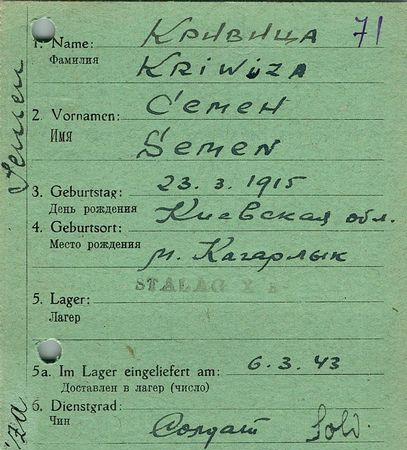 КРИВИЦА 71
1. Name:
Фамилия KRIWIZA
СЕМЕН
2. Vornamen:
Имя
SEMEN
3. Geburtstag: 23. 3. 1915
День рождения Киевская обл.
4. Geburtsort:
Место рождения м. Кагарлык
STALAG X B
5. Lager:
Лагерь
5a. Im Lager eingeliefert am: 6.3.43
Доставлен в лагерь (число)
6. Dienstgrad:
Чин Солдат Sold.
Semen